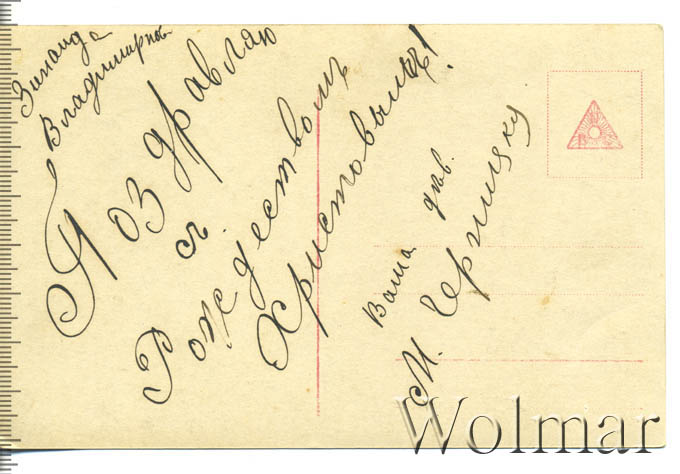 Зинаида
Владимировна
Поздравляю
съ
Рождествомъ
Христовымъ!
Ваша
М.
Wolmar